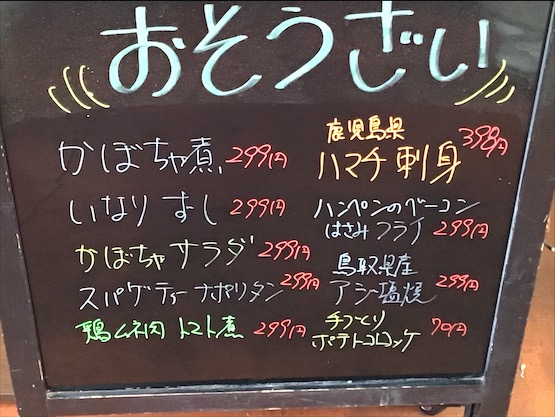 おそうざい
かぼちゃ煮 299円
いなりずし 299円
かぼちゃサラダ 299円
スパゲティーナポリタン 299円
鶏ムネ肉 トマト煮 299円
鹿児島県
ハマチ刺身 398円
ハンペンのベーコン
はさみフライ 299円
鳥取県産
アジ塩焼 299円
手づくり
ポテトコロッケ 70円